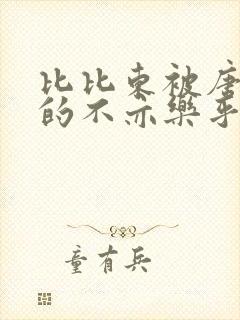 比比东被唐
的不亦乐乎
童有兵